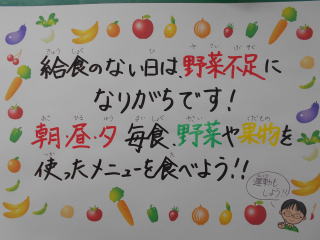 給食のない日は、野菜不足に
なりがちです!
朝・昼・夕 毎食、野菜や果物を
使ったメニューを食べよう!!
運動も
しよう!!